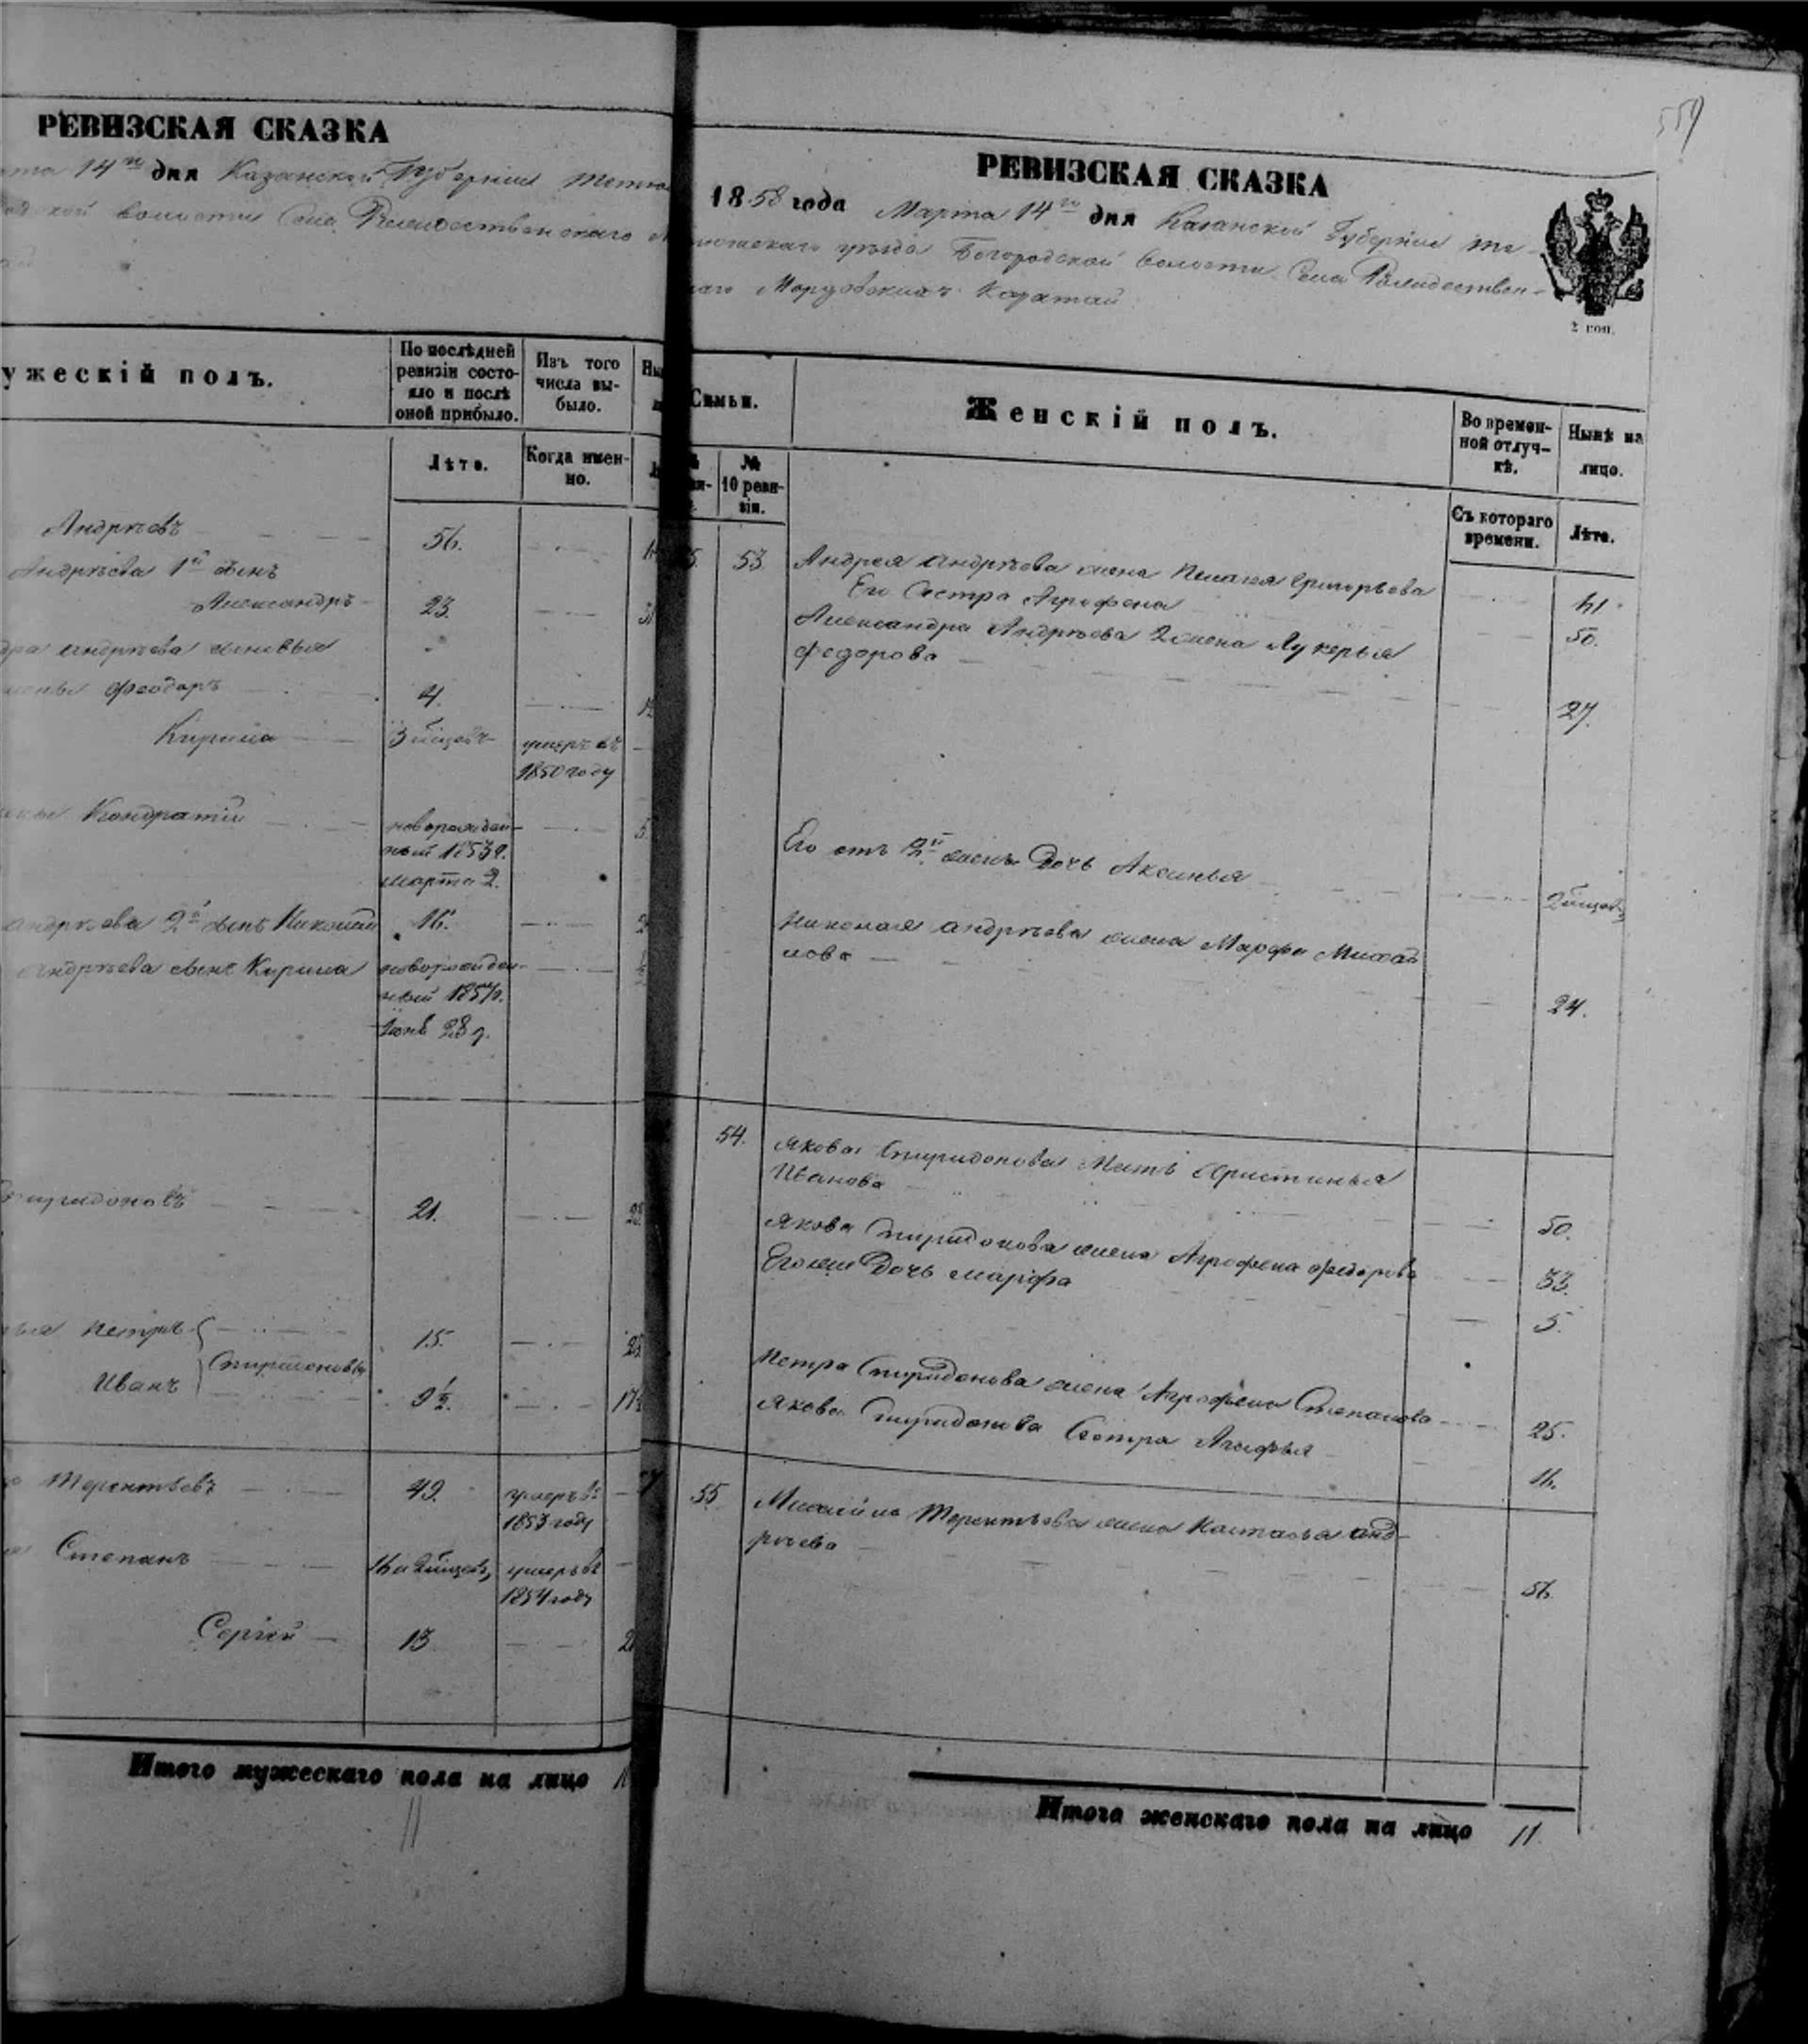 РЕВИЗСКАЯ СКАЗКА
14го дня Казанской Губернiи
волости Села Рождественскаго
ужескiй полъ.
По послѣдней ревизiи состо-
яло и послѣ
оной прибыло.
Изъ того
числа вы-
было.
Лѣта.
Когда имен-
но.
Андрѣевъ 56.
Андрѣева 1й сынъ
Александръ 23.
андрѣева сыновья
Феодоръ 4.
Кирила 3 мѣцовъ умеръ въ
1850 году
Кондратiй новорожден-
ный 1853 г.
марта 2.
андрѣева 2й сынъ Николай 16.
Андрѣева сынъ Кирила новорожден-
ный 1857 г.
Iюнь 28 д.
Спиридоновъ 21.
Петръ 15.
Спиридоновы
Иванъ 9½.
Терентьевъ 49. умеръ въ
1853 году
Степанъ умеръ въ
1854 году
Сергѣй 13
Итого мужескаго пола на лицо
11
559
РЕВИЗСКАЯ СКАЗКА
1858 года Марта 14го дня Казанской Губернiи Те-
тюшскаго уѣзда Богородской волости Села Рождествен-
скаго Мордовскихъ Каратай
2 коп.
Семьи.
Женскiй полъ.
Во времен-
ной отлуч-
кѣ.
Нынѣ на
лицо.
№
10 реви-
зiи.
Съ котораго
времени.
Лѣта.
53 Андрея Андрѣева жена Пелагея Григорьева 41.
Его Сестра Агрофена 50.
Александра Андрѣева 2 жена Лукерья
Федорова 27.
Его отъ 2й жены Дочь Аксинья 2 мѣцов
Николая андрѣева жена Марфа Михай
лова 24.
54. Якова Спиридонова Мать Христинья
Иванова 50.
Якова Спиридонова жена Агрофена Федорова 33.
Его же Дочь Марфа 5.
Петра Спиридонова жена Агрофена Степанова 25.
Якова Спиридонова Сестра Агафья 16.
55 Михайла Терентьева жена Настасья Анд-
рѣева 56.
Итого женскаго пола на лицо 11.